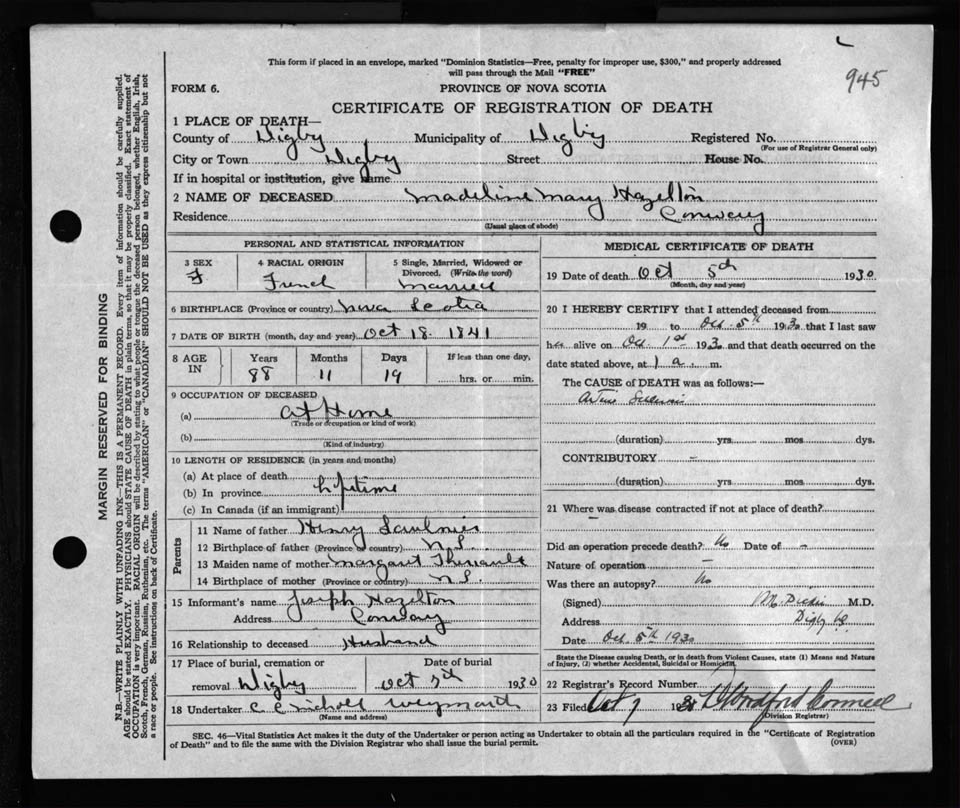 945
This form if placed in an envelope, marked "Dominion Statistics—Free, penalty for improper use, $300," and properly addressed
will pass through the Mail "FREE"
FORM 6.
PROVINCE OF NOVA SCOTIA
CERTIFICATE OF REGISTRATION OF DEATH
MARGIN RESERVED FOR BINDING
N.B.—WRITE PLAINLY WITH UNFADING INK—THIS IS A PERMANENT RECORD. Every item of information should be carefully supplied.
AGE should be stated EXACTLY. PHYSICIANS should STATE CAUSE OF DEATH in plain terms, so that it may be properly classified. Exact statement of
OCCUPATION is very important. RACIAL ORIGIN will be described by stating to what people or tongue the deceased person belonged, whether English, Irish,
Scotch, French, German, Russian, Ruthenian, etc. The terms "AMERICAN" or "CANADIAN" SHOULD NOT BE USED as they express citizenship but not
a race or people. See instructions on back of Certificate.
1 PLACE OF DEATH—
County of Digby Municipality of Digby Registered No.
(For use of Registrar General only)
City or Town Digby Street House No.
If in hospital or institution, give name
2 NAME OF DECEASED Madeline Mary Hazelton
Residence Conway
(Usual place of abode)
PERSONAL AND STATISTICAL INFORMATION
3 SEX 4 RACIAL ORIGIN 5 Single, Married, Widowed or
Divorced. (Write the word)
F French Married
6 BIRTHPLACE (Province or country) Nova Scotia
7 DATE OF BIRTH (month, day and year) Oct 18. 1841
8 AGE IN Years Months Days If less than one day,
88 11 19 hrs. or min.
9 OCCUPATION OF DECEASED
(a) At Home
(Trade or occupation or kind of work)
(b)
(Kind of industry)
10 LENGTH OF RESIDENCE (in years and months)
(a) At place of death
(b) In province lifetime
(c) In Canada (if an immigrant)
Parents
11 Name of father Henry Saulnier
12 Birthplace of father (Province or country) N.S.
13 Maiden name of mother Margaret Theriault
14 Birthplace of mother (Province or country) N.S.
15 Informant's name Joseph Hazelton
Address Conway
16 Relationship to deceased Husband
17 Place of burial, cremation or Date of burial
removal Digby Oct 7th 1930
18 Undertaker C C Nicholl Weymouth
(Name and address)
MEDICAL CERTIFICATE OF DEATH
19 Date of death Oct 5th 1930
(Month, day and year)
20 I HEREBY CERTIFY that I attended deceased from
19 to Oct. 5th 1930 that I last saw
her alive on Oct 1st 1930 and that death occurred on the
date stated above, at 1 a. m.
The CAUSE of DEATH was as follows:—
(duration) yrs. mos. dys.
CONTRIBUTORY –
(duration) yrs. mos. dys.
21 Where was disease contracted if not at place of death?
–
Did an operation precede death? No Date of –
Nature of operation –
Was there an autopsy? No
(Signed) M.D.
Address Digby
Date Oct. 5th 1930
State the Disease causing Death, or in death from Violent Causes, state (1) Means and Nature
of Injury, (2) whether Accidental, Suicidal or Homicidal
22 Registrar's Record Number
23 Filed Oct 7 1930
(Division Registrar)
SEC. 46—Vital Statistics Act makes it the duty of the Undertaker or person acting as Undertaker to obtain all the particulars required in the "Certificate of Registration
of Death" and to file the same with the Division Registrar who shall issue the burial permit.
(OVER)